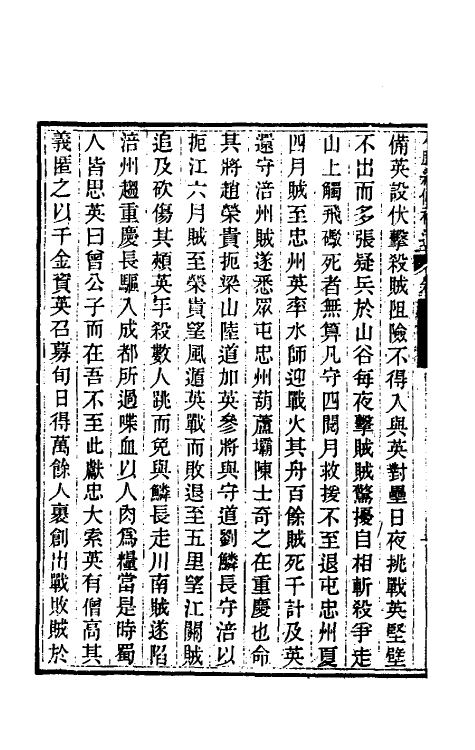 備英設伏擊殺賊阻險不得入與英對壘日夜挑戰英堅壁
不出而多張疑兵於山谷每夜擊賊賊驚擾自相斬殺爭走
山上觸飛礮死者無算凡守四閱月救援不至退屯忠州夏
四月賊至忠州英率水師迎戰火其舟百餘賊死千計及英
還守涪州賊遂悉眾屯忠州葫蘆壩陳士奇之在重慶也命
其將趙榮貴扼梁山陸道加英參將與守道劉鱗長守涪以
扼江六月賊至榮貴望風遁英戰而敗退至五里望江關賊
追及砍傷其頰英手殺數人跳而免與鱗長走川南賊遂陷
涪州趨重慶長驅入成都所過喋血以人肉為糧當是時蜀
人皆思英曰曾公子而在吾不至此獻忠大索英有僧高其
義匿之以千金資英召募旬日得萬餘人裹創出戰敗賊於